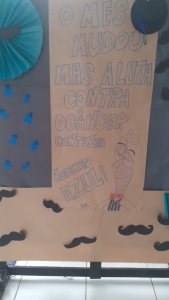 O MÊS
MUDOU
MAS A LUTA
CONTRA
O CÂNCER
CONTINUA
NOVEMBRO
AZUL!